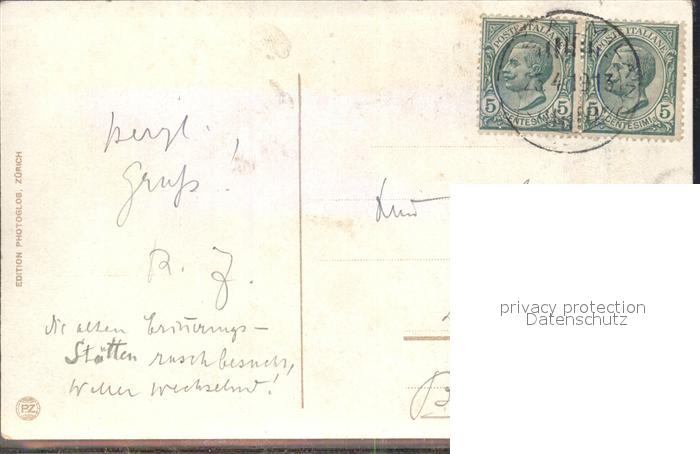 POSTE ITALIANE POSTE ITALIANE
4.1913
5 5 5 5
CENTESIMI CENTESIMI
herzl.
Gruß!
R. Z.
die alten Erinnerungs-
Stätten rasch besucht,
Wetter wechselnd!
EDITION PHOTOGLOB, ZÜRICH
P.Z.
privacy protection
Datenschutz